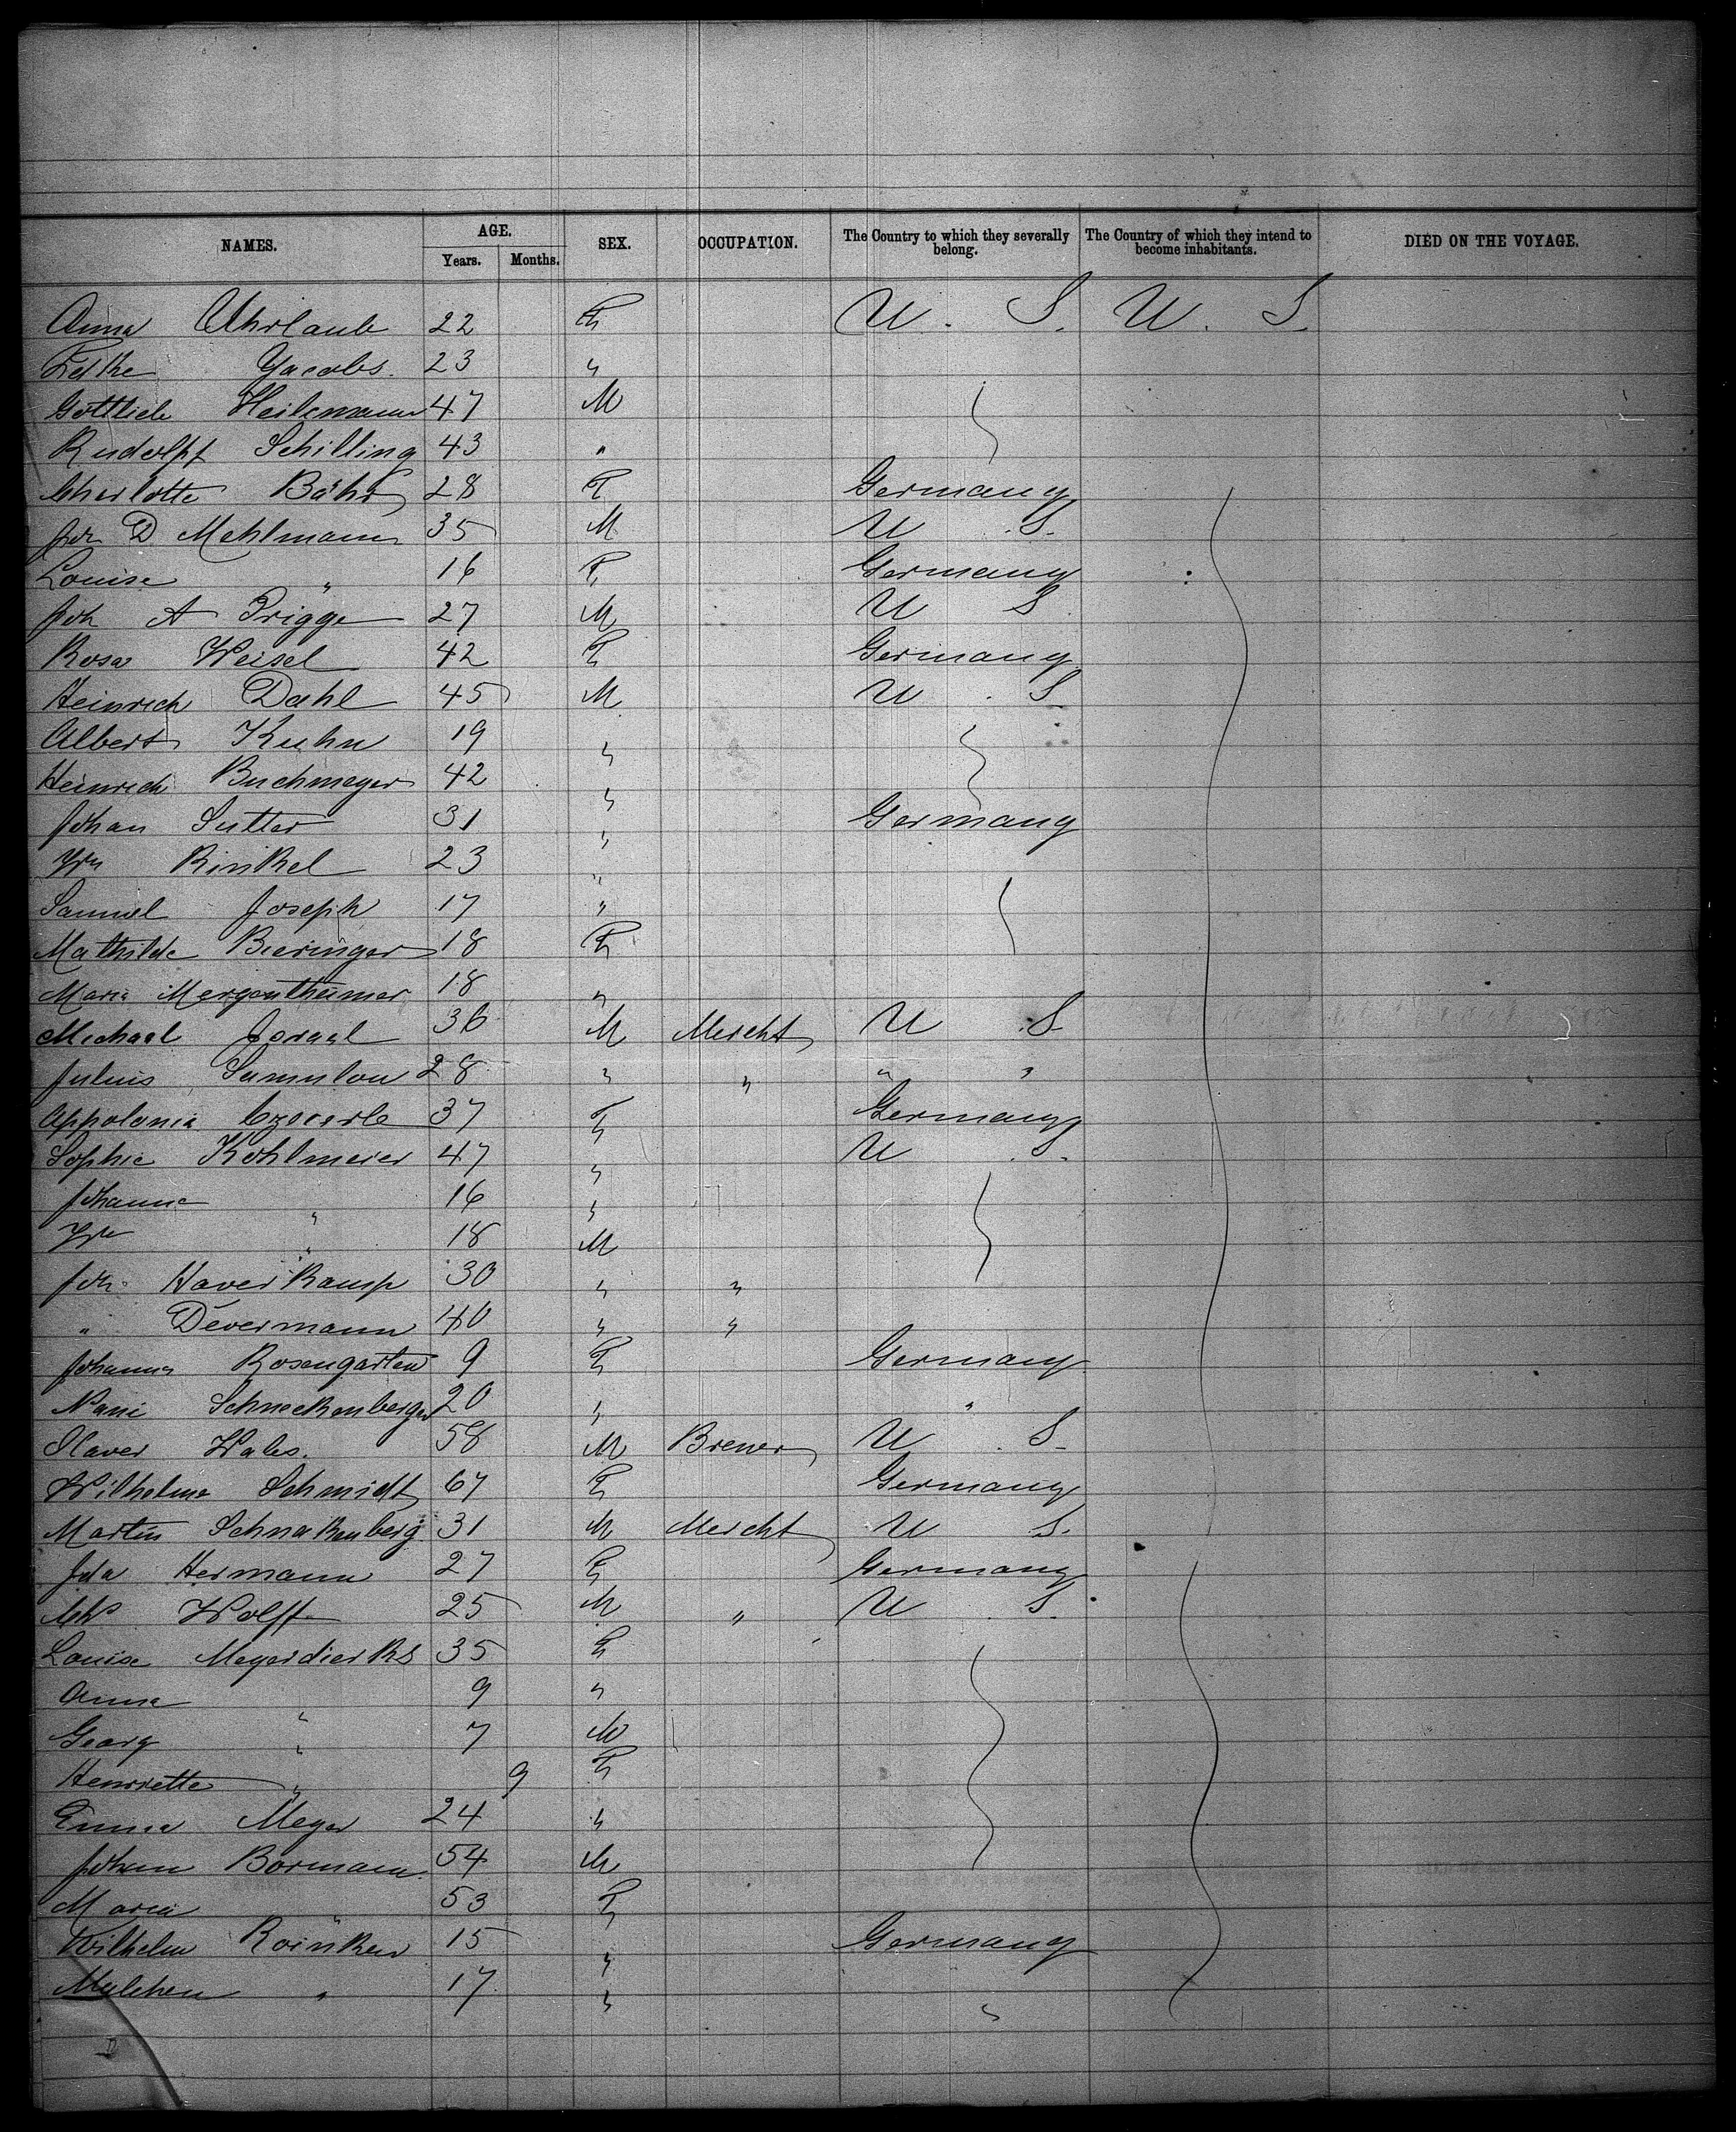 NAMES. AGE. SEX. OCCUPATION. The Country to which they severally belong. The Country of which they intend to become inhabitants. DIED ON THE VOYAGE.
Years. Months.
Anna Uhrlaub 22 F U. S. U. S.
Yacobs. 23 "
Gottlieb Heilemann 47 M
Rudolpf Schilling 43 "
Charlotte Bähr 28 F Germany
Joh D Mehlmann 35 M U. S.
Louise " 16 F Germany
Joh A Prigge 27 M U S
Rosa Weisel 42 F Germany
Heinrich Dahl 45 M U. S
Albert Kuhn 19 "
Heinrich Buchmeyer 42 "
Johan Sutter 31 " Germany
Wm Rinkel 23 "
Samuel Joseph 17 "
Mathilde Bieringer 18 F
Maria Mergentheimer 18 "
Michael Israel 36 M Mercht U. S
Julius Samulon 28 " " " "
Appolonia 37 F Germany
Sophie Kohlmeier 47 " U. S.
Johanne " 16 "
Wm " 18 M
Joh. Haverkamp 30 " "
" Devermann 40 " "
Johanna Rosengarten 9 F Germany
Nani Schneckenberger 20 " "
58 M Brewer U. S.
Wilhelmine Schmidt 67 F Germany
Martin Schnakenberg 31 M Mercht U S.
Ida Hermann 27 F Germany
Wolff 25 M " U. S.
Louise Meyerdierks 35 F
Anna " 9 "
Georg " 7 M
Henriette " 9 F
Emma Meyer 24 "
Johann Bormann 54 M
Maria " 53 F
Wilhelm Roinken 15 " Germany
Malchen " 17 " "